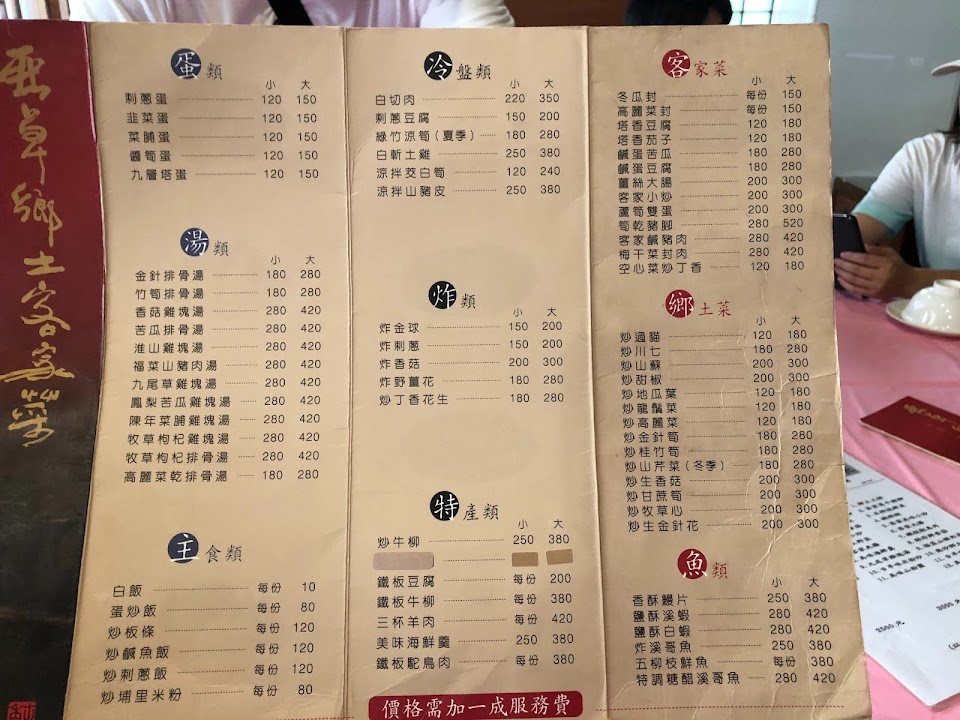 鄉土客家菜
蛋類
小 大
刺蔥蛋 120 150
韭菜蛋 120 150
菜脯蛋 120 150
醬筍蛋 120 150
九層塔蛋 120 150
湯類
小 大
金針排骨湯 180 280
竹筍排骨湯 180 280
香菇雞塊湯 280 420
苦瓜排骨湯 280 420
淮山雞塊湯 280 420
福菜山豬肉湯 280 420
九尾草雞塊湯 280 420
鳳梨苦瓜雞塊湯 280 420
陳年菜脯雞塊湯 280 420
牧草枸杞雞塊湯 280 420
牧草枸杞排骨湯 280 420
高麗菜乾排骨湯 180 280
主食類
白飯 每份 10
蛋炒飯 每份 80
炒板條 每份 120
炒鹹魚飯 每份 120
炒刺蔥飯 每份 120
炒埔里米粉 每份 80
冷盤類
小 大
白切肉 220 350
刺蔥豆腐 150 200
綠竹涼筍(夏季) 180 280
白斬土雞 250 380
涼拌茭白筍 120 240
涼拌山豬皮 250 380
炸類
小 大
炸金球 150 200
炸刺蔥 150 200
炸香菇 200 300
炸野薑花 180 280
炒丁香花生 180 280
特產類
小 大
炒牛柳 250 380
鐵板豆腐 每份 200
鐵板牛柳 每份 380
三杯羊肉 每份 420
美味海鮮羹 250 380
鐵板駝鳥肉 每份 380
價格需加一成服務費
客家菜
小 大
冬瓜封 每份 150
高麗菜封 每份 150
塔香豆腐 120 180
塔香茄子 120 180
鹹蛋苦瓜 180 280
鹹蛋豆腐 180 280
薑絲大腸 200 300
客家小炒 200 300
蘆筍雙蛋 200 300
筍乾豬腳 280 520
客家鹹豬肉 280 420
梅干菜封肉 280 420
空心菜炒丁香 120 180
鄉土菜
小 大
炒過貓 120 180
炒川七 180 280
炒山蘇 200 300
炒甜椒 200 300
炒地瓜葉 120 180
炒龍鬚菜 120 180
炒高麗菜 120 180
炒金針筍 180 280
炒桂竹筍 180 280
炒山芹菜(冬季) 180 280
炒生香菇 200 300
炒甘蔗筍 200 300
炒牧草心 200 300
炒生金針花 200 300
魚類
小 大
香酥鰻片 250 380
鹽酥溪蝦 280 420
鹽酥白蝦 280 420
炸溪哥魚 250 380
五柳枝鮮魚 每份 380
特調糖醋溪哥魚 280 420
3000元
2500元